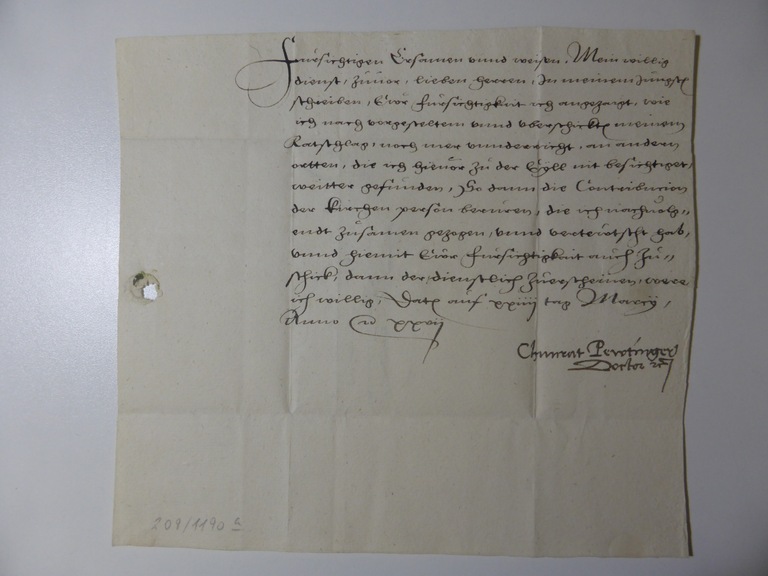 Fursichtigen Ersamen vnnd weisen, Mein willig
dienst, zuuor, lieben herren, In meinem Jungstn
schreiben, Ewr fursichtigkait ich angezaigt, wie
ich nach vorgesteltem vnnd vberschicktn meinem
Ratschlag, noch mer vnnderricht, an andern
ortten, die ich hieuor zu der Eyll nit besichtiget,
weitter gefunden, So dann die Contribucion
der kirchen person beruren, die ich nachuolg-
endt zusamen gezogen, vnnd verteutscht hab,
vnnd hiemit Ewr fursichtigkait auch zu-
schick, dann der dienstlich zuerscheinen, were
ich willig, Datn auf xxiiij tag Marcij,
Anno xxvij
Chunrat Pewtinger
Doctor
209/1190